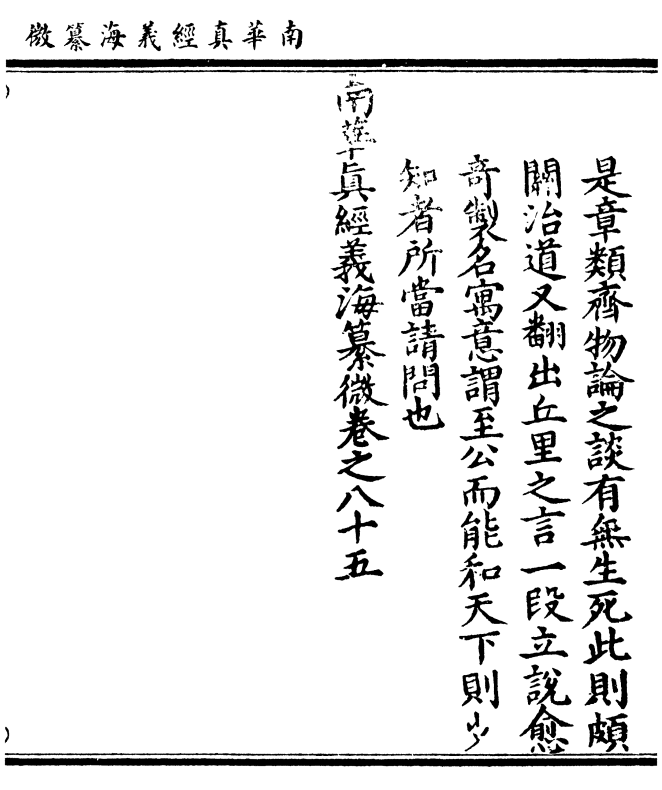 南華真經義海纂微
是章類齊物論之談有無生死此則頗
關治道又翻出丘里之言一段立說愈
竒製名寓意謂至公而能和天下則少
知者所當請問也
南華眞經義海纂微卷之八十五